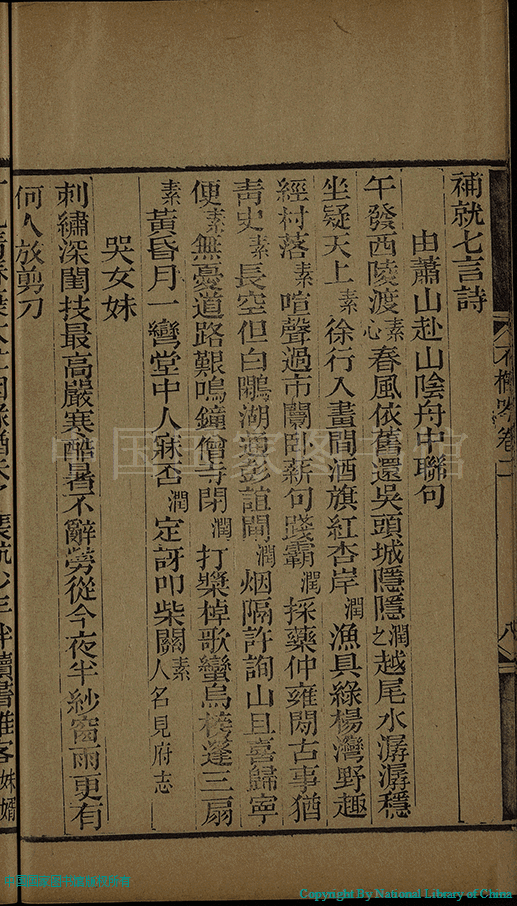 補就七言詩
由蕭山赴山陰舟中聯句
午發西陵渡素心春風依舊還吳頭城隱隱潤之越尾水潺潺穩
坐疑天上素徐行入畫間酒旗紅杏岸潤漁具綠楊灣野趣
經村落素喧聲過市闤臥薪句踐霸潤採藥仲雍閒古事猶
靑史素長空但白鷴湖通彭誼閘潤烟隔許詢山且喜歸寧
便素無憂道路艱鳴鐘僧寺閉潤打槳棹歌蠻烏榜蓬三扇
素黃昏月一彎堂中人寐否潤定訝叩柴關素人名見府志
哭女妹
刺繡深閨技最高嚴寒酷暑不辭勞從今夜半紗窗雨更有
何人放剪刀
妹婿
不櫛吟卷二
八
中国国家图书馆
中国国家图书馆版权所有
Copyright By National Library of China